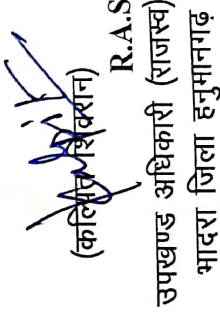 (कल्पित शिवरान)
R.A.S
उपखण्ड अधिकारी (राजस्व)
भादरा जिला हनुमानगढ़